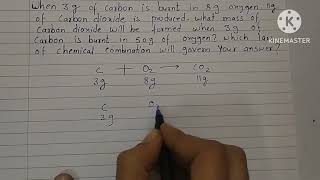 When 3 g of Carbon is burnt in 8g oxygen 11g
of Carbon dioxide is produced. what mass of
Carbon dioxide will be formed when 3g of
Carbon is burnt in 50g of oxygen? which law
of chemical combination will govern your answer?
C + O₂ → CO₂
3g 8g 11g
C O
3g
KINEMASTER